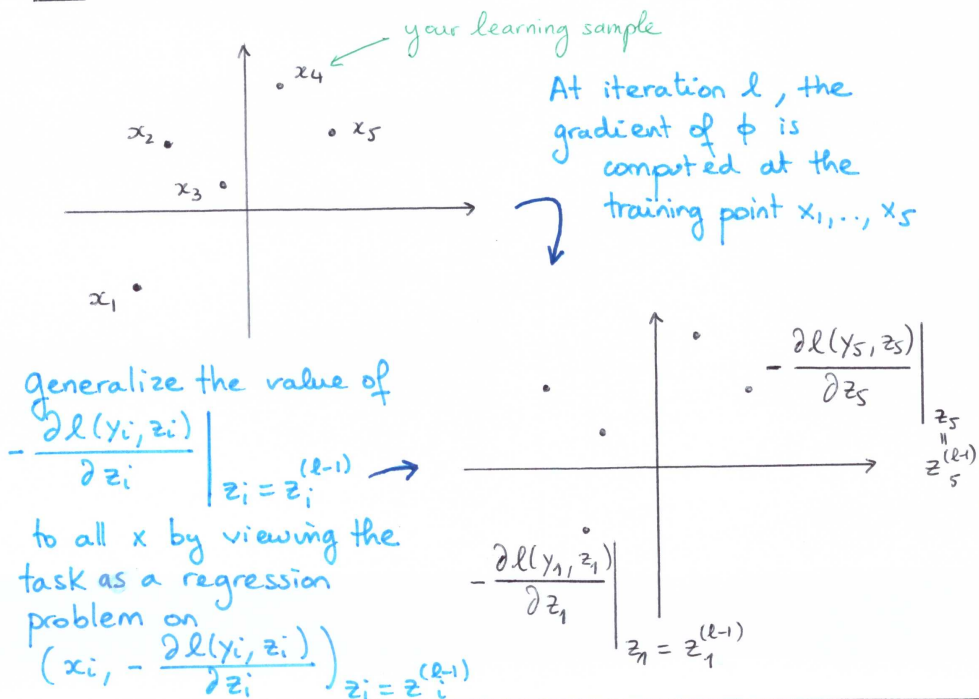 your learning sample
x4
x5
x2
x3
x1
At iteration l, the
gradient of ϕ is
computed at the
training point x1,.., x5
generalize the value of
- ∂l(yi, zi) / ∂zi | zi = zi^(l-1)
to all x by viewing the
task as a regression
problem on
(xi, - ∂l(yi, zi) / ∂zi) zi = zi^(l-1)
- ∂l(y5, z5) / ∂z5 | z5 = z5^(l-1)
- ∂l(y1, z1) / ∂z1 | z1 = z1^(l-1)